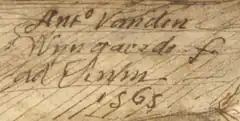 Antº Vanden
Wyngaerde f.
ad vivum
1565